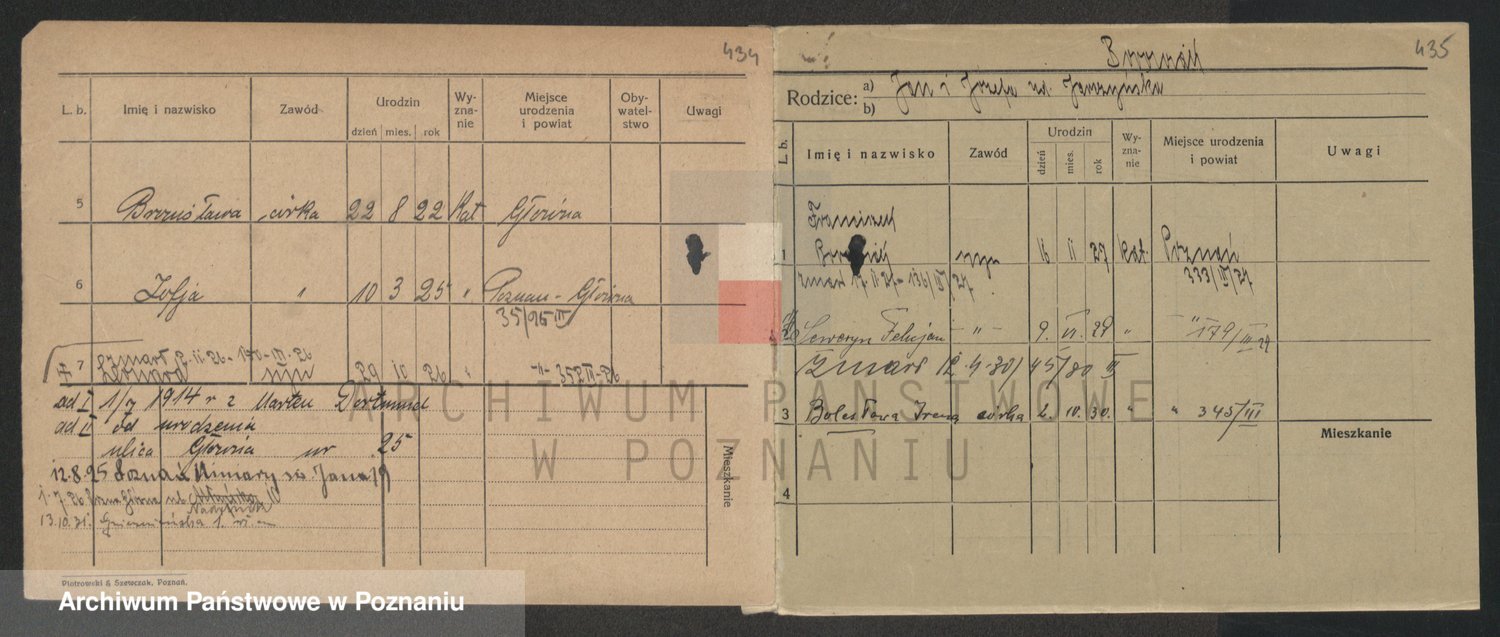 434
L. b.
Imię i nazwisko
Zawód
Urodzin
dzień mies. rok
Wy-
zna-
nie
Miejsce
urodzenia
i powiat
Oby-
watel-
stwo
Uwagi
5 Bronisława córka 22 8 22 Kat Główna
6 Zofja " 10 3 25 " Poznań - Główna
35/25 III
zmarł 2.II.26 - 170 - III - 26
7 syn 29 10 26 " -"- 352 III - 26
ad I 1/7 1914 r z Marten Dortmund
ad II od urodzenia
ulica Główna nr 25
12.8.25 Poznań Winiary św Jana 19
1.7.26 Główna 10
13.10.31. Gnieźnieńska 1.
Mieszkanie
Piotrowski & Szewczak, Poznań.
435
Rodzice:
a) Jan i Józefa
b)
L. b.
Imię i nazwisko
Zawód
Urodzin
dzień
mies.
rok
Wy-
zna-
nie
Miejsce urodzenia
i powiat
Uwagi
Franciszek
1 syn 16 II 27 kat. Poznań
zmarł 17.II.27 - 136/III/27 333/III/27
2 Seweryn Felicjan -"- 9. VI. 29 " " 179/III 29
Zmarł 12.4.30 / 45/30 III
3 Bolesława Irena córka 2. 10. 30. " " 345/III
Mieszkanie
4
ARCHIWUM PAŃSTWOWE
W POZNANIU
Archiwum Państwowe w Poznaniu